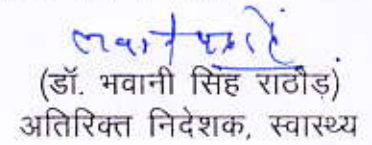 (डॉ. भवानी सिंह राठौड़)
अतिरिक्त निदेशक, स्वास्थ्य